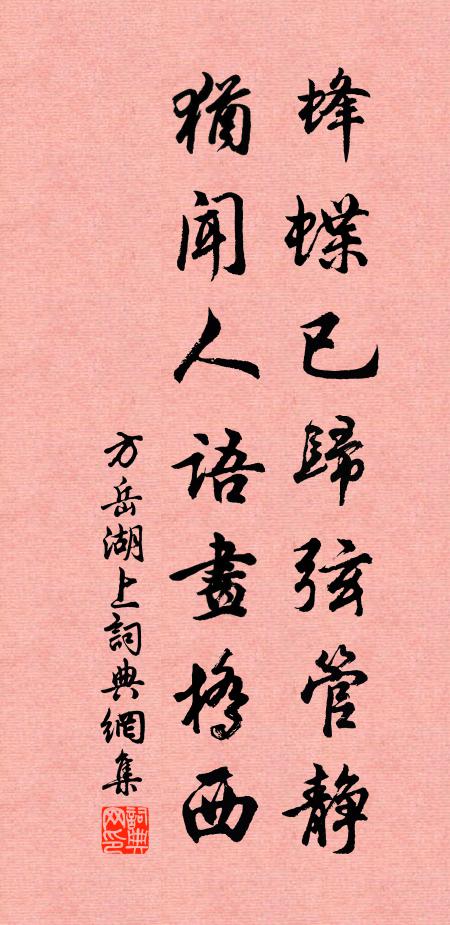 蜂蝶已歸弦管静
猶聞人語畫橋西
方岳湖上詞典網集
詞典网印